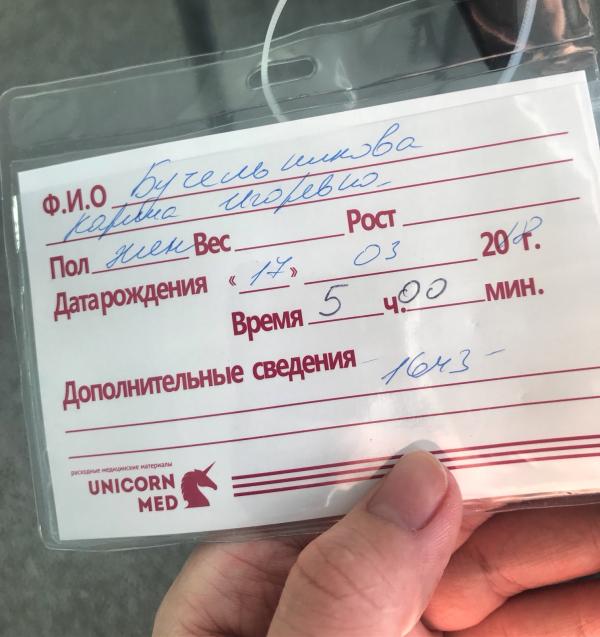 Ф.И.О Бучельникова
Карина Игоревна
Пол жен Вес Рост
Дата рождения «17» 03 2018 г.
Время 5 ч. 00 мин.
Дополнительные сведения - 1643 -
расходные медицинские материалы
UNICORN
MED